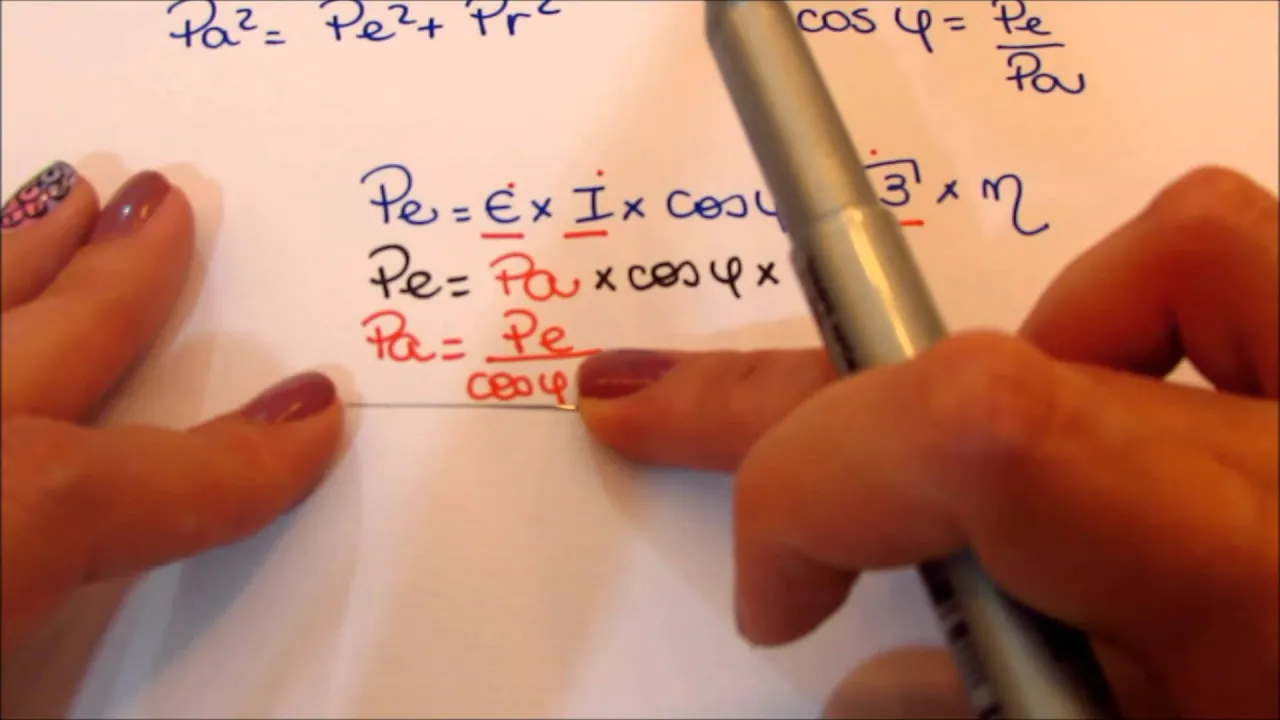 Pa² = Pe² + Pr²
cos φ = Pe
Pa
Pe = E × I × cos 3 × η
Pe = Pa × cos φ ×
Pa = Pe
cos φ